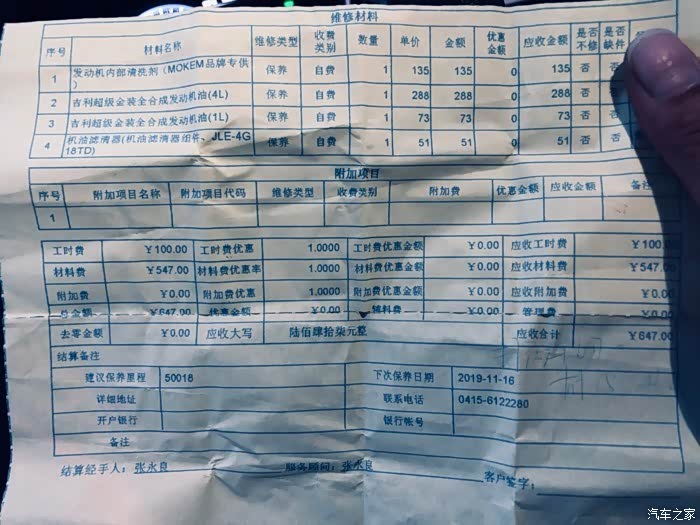 维修材料
序号 材料名称 维修类型 收费类别 数量 单价 金额 优惠金额 应收金额 是否不修 是否缺件
1 发动机内部清洗剂（MOKEM品牌专供） 保养 自费 1 135 135 0 135 否 否
2 吉利超级金装全合成发动机油(4L) 保养 自费 1 288 288 0 288 否 否
3 吉利超级金装全合成发动机油(1L) 保养 自费 1 73 73 0 73 否 否
4 机油滤清器(机油滤清器组件、JLE-4G18TD) 保养 自费 1 51 51 0 51 否 否
附加项目
序号 附加项目名称 附加项目代码 维修类型 收费类别 附加费 优惠金额 应收金额 备注
1
工时费 ￥100.00 工时费优惠 1.0000 工时费优惠金额 ￥0.00 应收工时费 ￥100.
材料费 ￥547.00 材料费优惠率 1.0000 材料费优惠金额 ￥0.00 应收材料费 ￥547.
附加费 ￥0.00 附加费优惠 1.0000 附加费优惠金额 ￥0.00 应收附加费 ￥0.00
总金额 ￥647.00 优惠金额 ￥0.00 辅料费 ￥0.00 管理费 ￥0.00
去零金额 ￥0.00 应收大写 陆佰肆拾柒元整 应收合计 ￥647.00
结算备注
建议保养里程 50018 下次保养日期 2019-11-16
详细地址 联系电话 0415-6122280
开户银行 银行帐号
备注
结算经手人：张永良 服务顾问：张永良 客户签字：
汽车之家